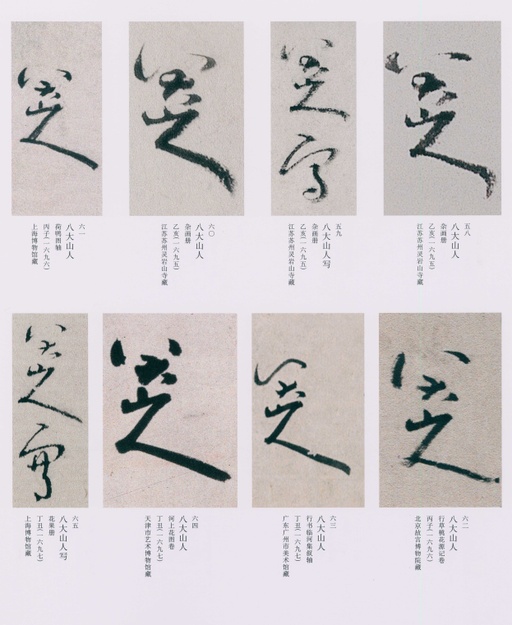 八大山人
五八
八大山人
杂画册
乙亥(一六九五)
江苏苏州灵岩山寺藏
八大山人写
五九
八大山人写
杂画册
乙亥(一六九五)
江苏苏州灵岩山寺藏
八大山人
六〇
八大山人
杂画册
乙亥(一六九五)
江苏苏州灵岩山寺藏
八大山人
六一
八大山人
荷鸭图轴
丙子(一六九六)
上海博物馆藏
八大山人
六二
八大山人
行草桃花源记卷
丙子(一六九六)
北京故宫博物院藏
八大山人
六三
八大山人
行书临河集叙轴
丁丑(一六九七)
广东广州市美术馆藏
八大山人
六四
八大山人
河上花图卷
丁丑(一六九七)
天津市艺术博物馆藏
八大山人写
六五
八大山人写
花果册
丁丑(一六九七)
上海博物馆藏